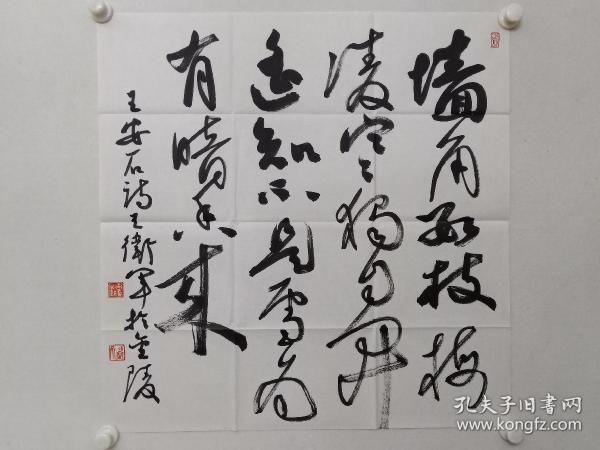 墙角数枝梅
凌寒獨自开
遥知不是雪为
有暗香来
王安石诗王衛军於金陵
孔夫子旧书网
www.kongfz.com